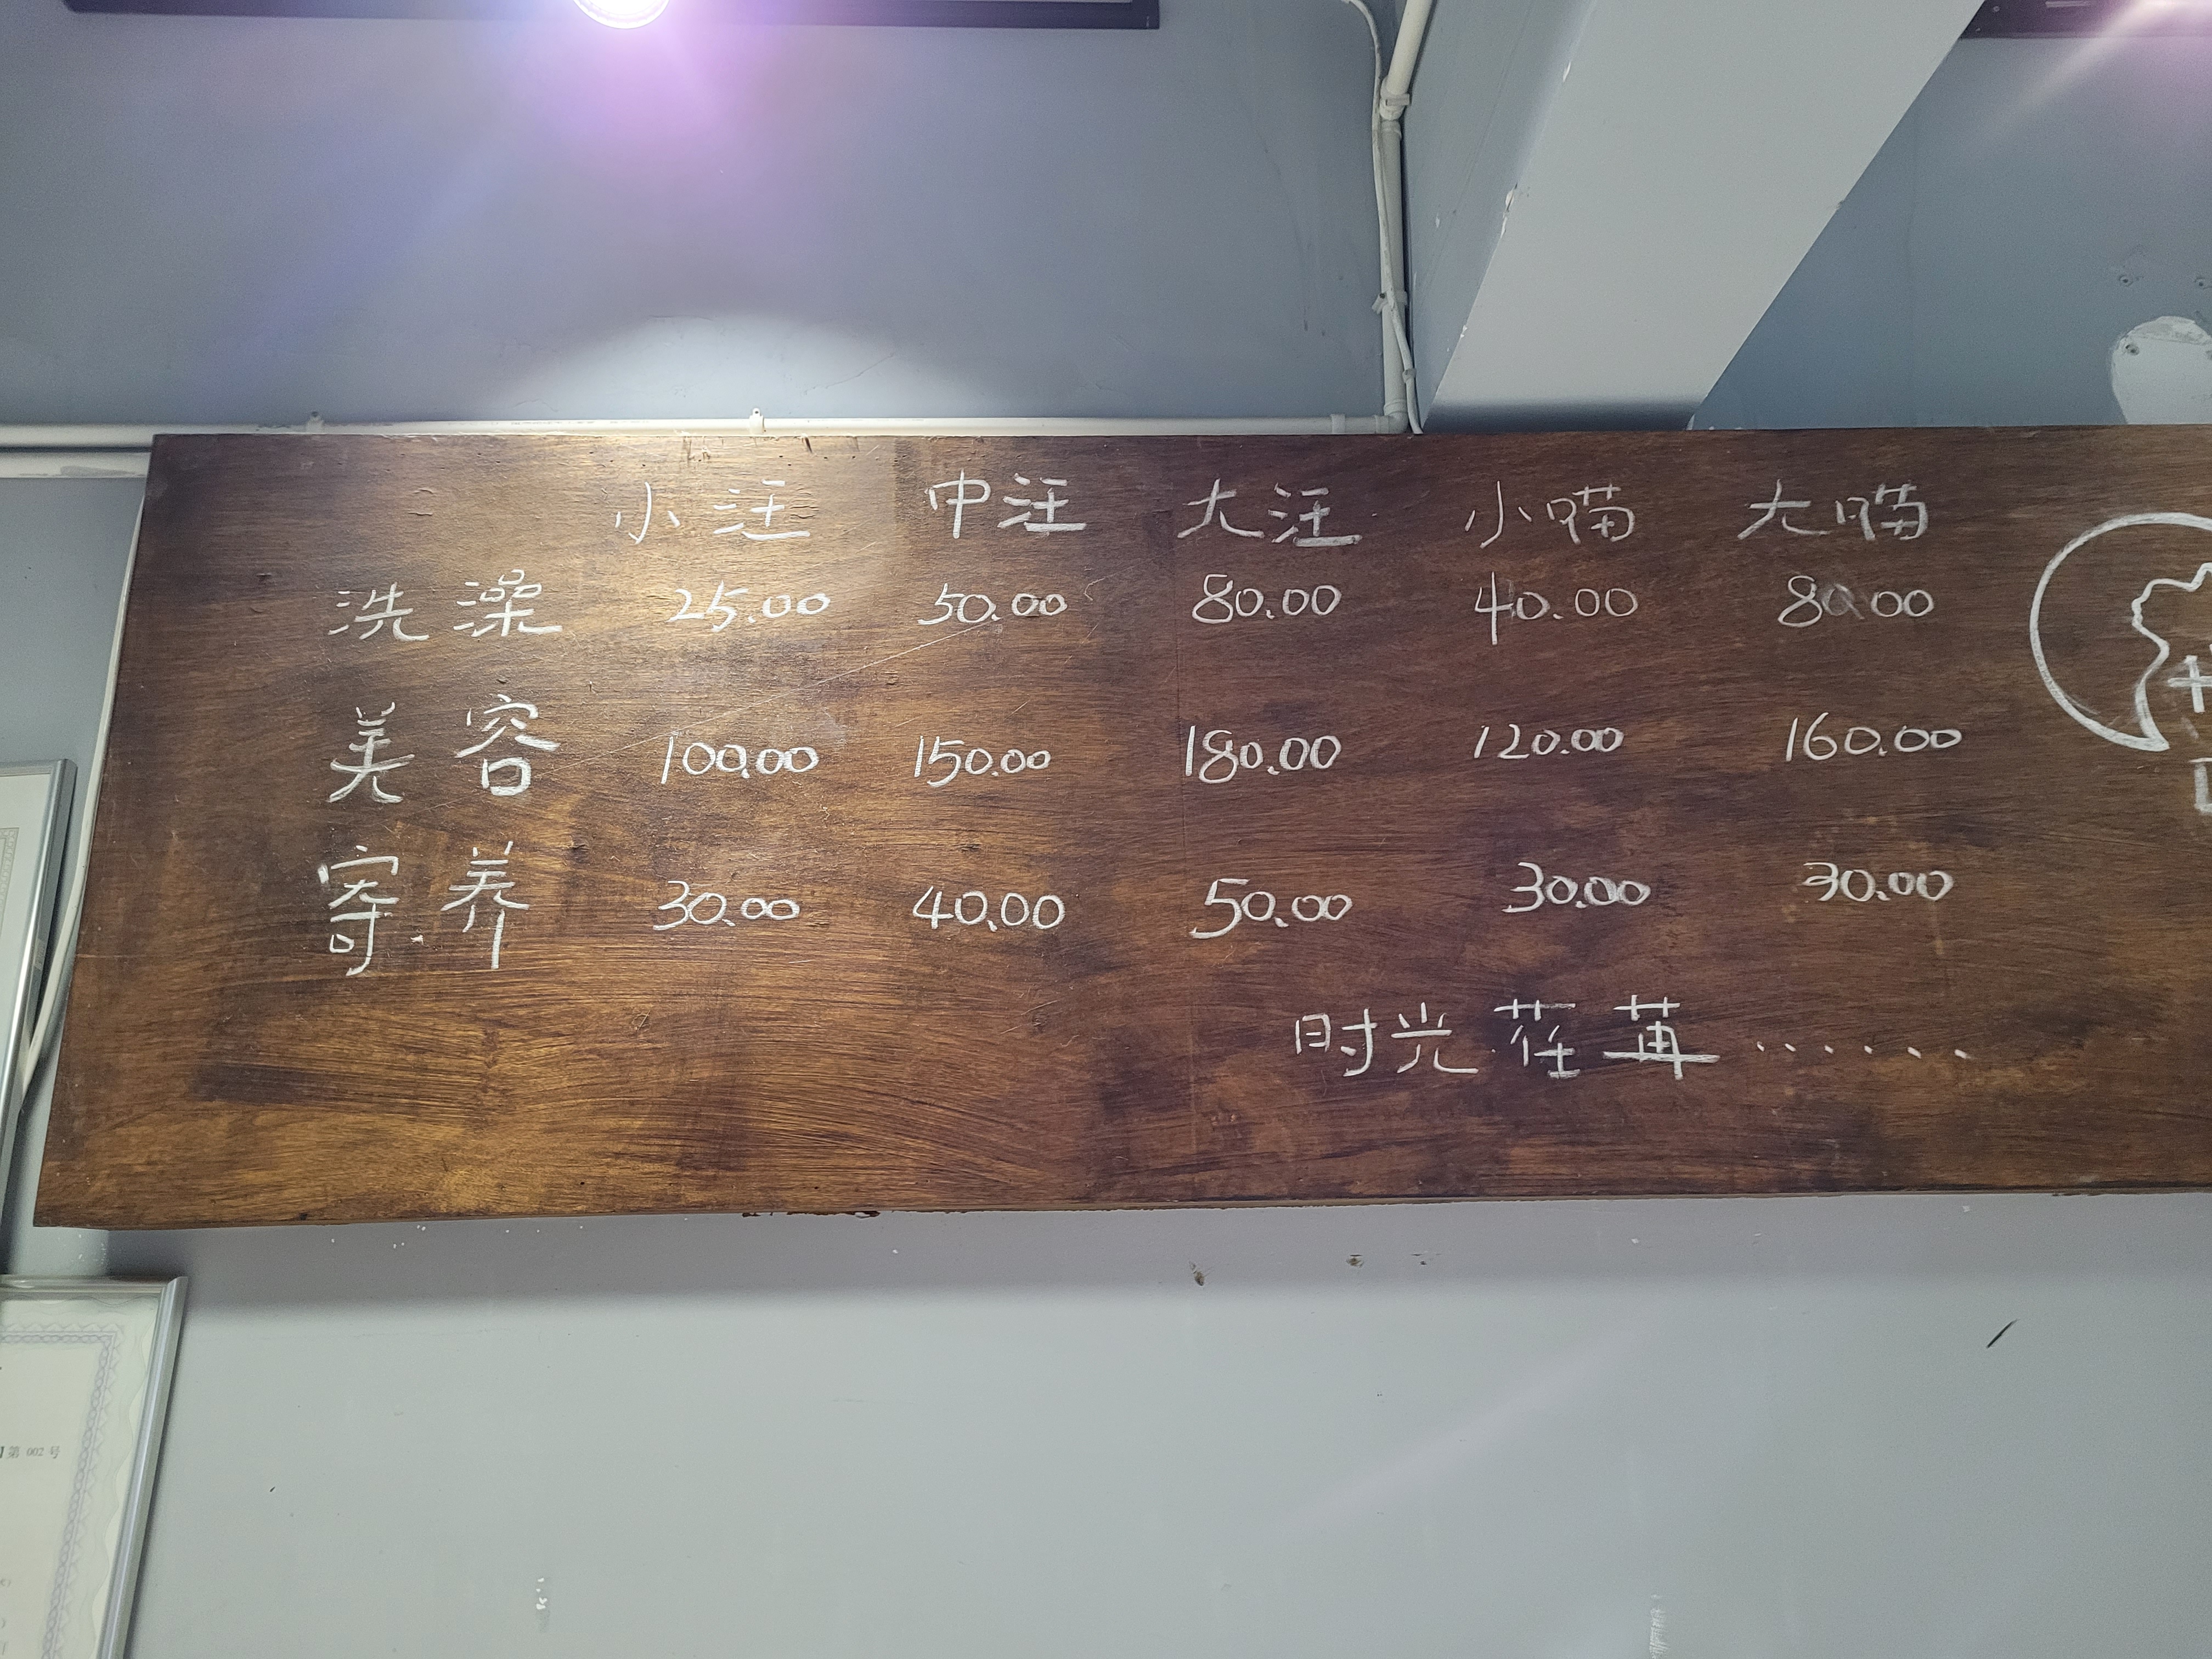 小汪 中汪 大汪 小喵 大喵
洗澡 25.00 50.00 80.00 40.00 80.00
美容 100.00 150.00 180.00 120.00 160.00
寄养 30.00 40.00 50.00 30.00 30.00
时光荏苒......
第 002 号